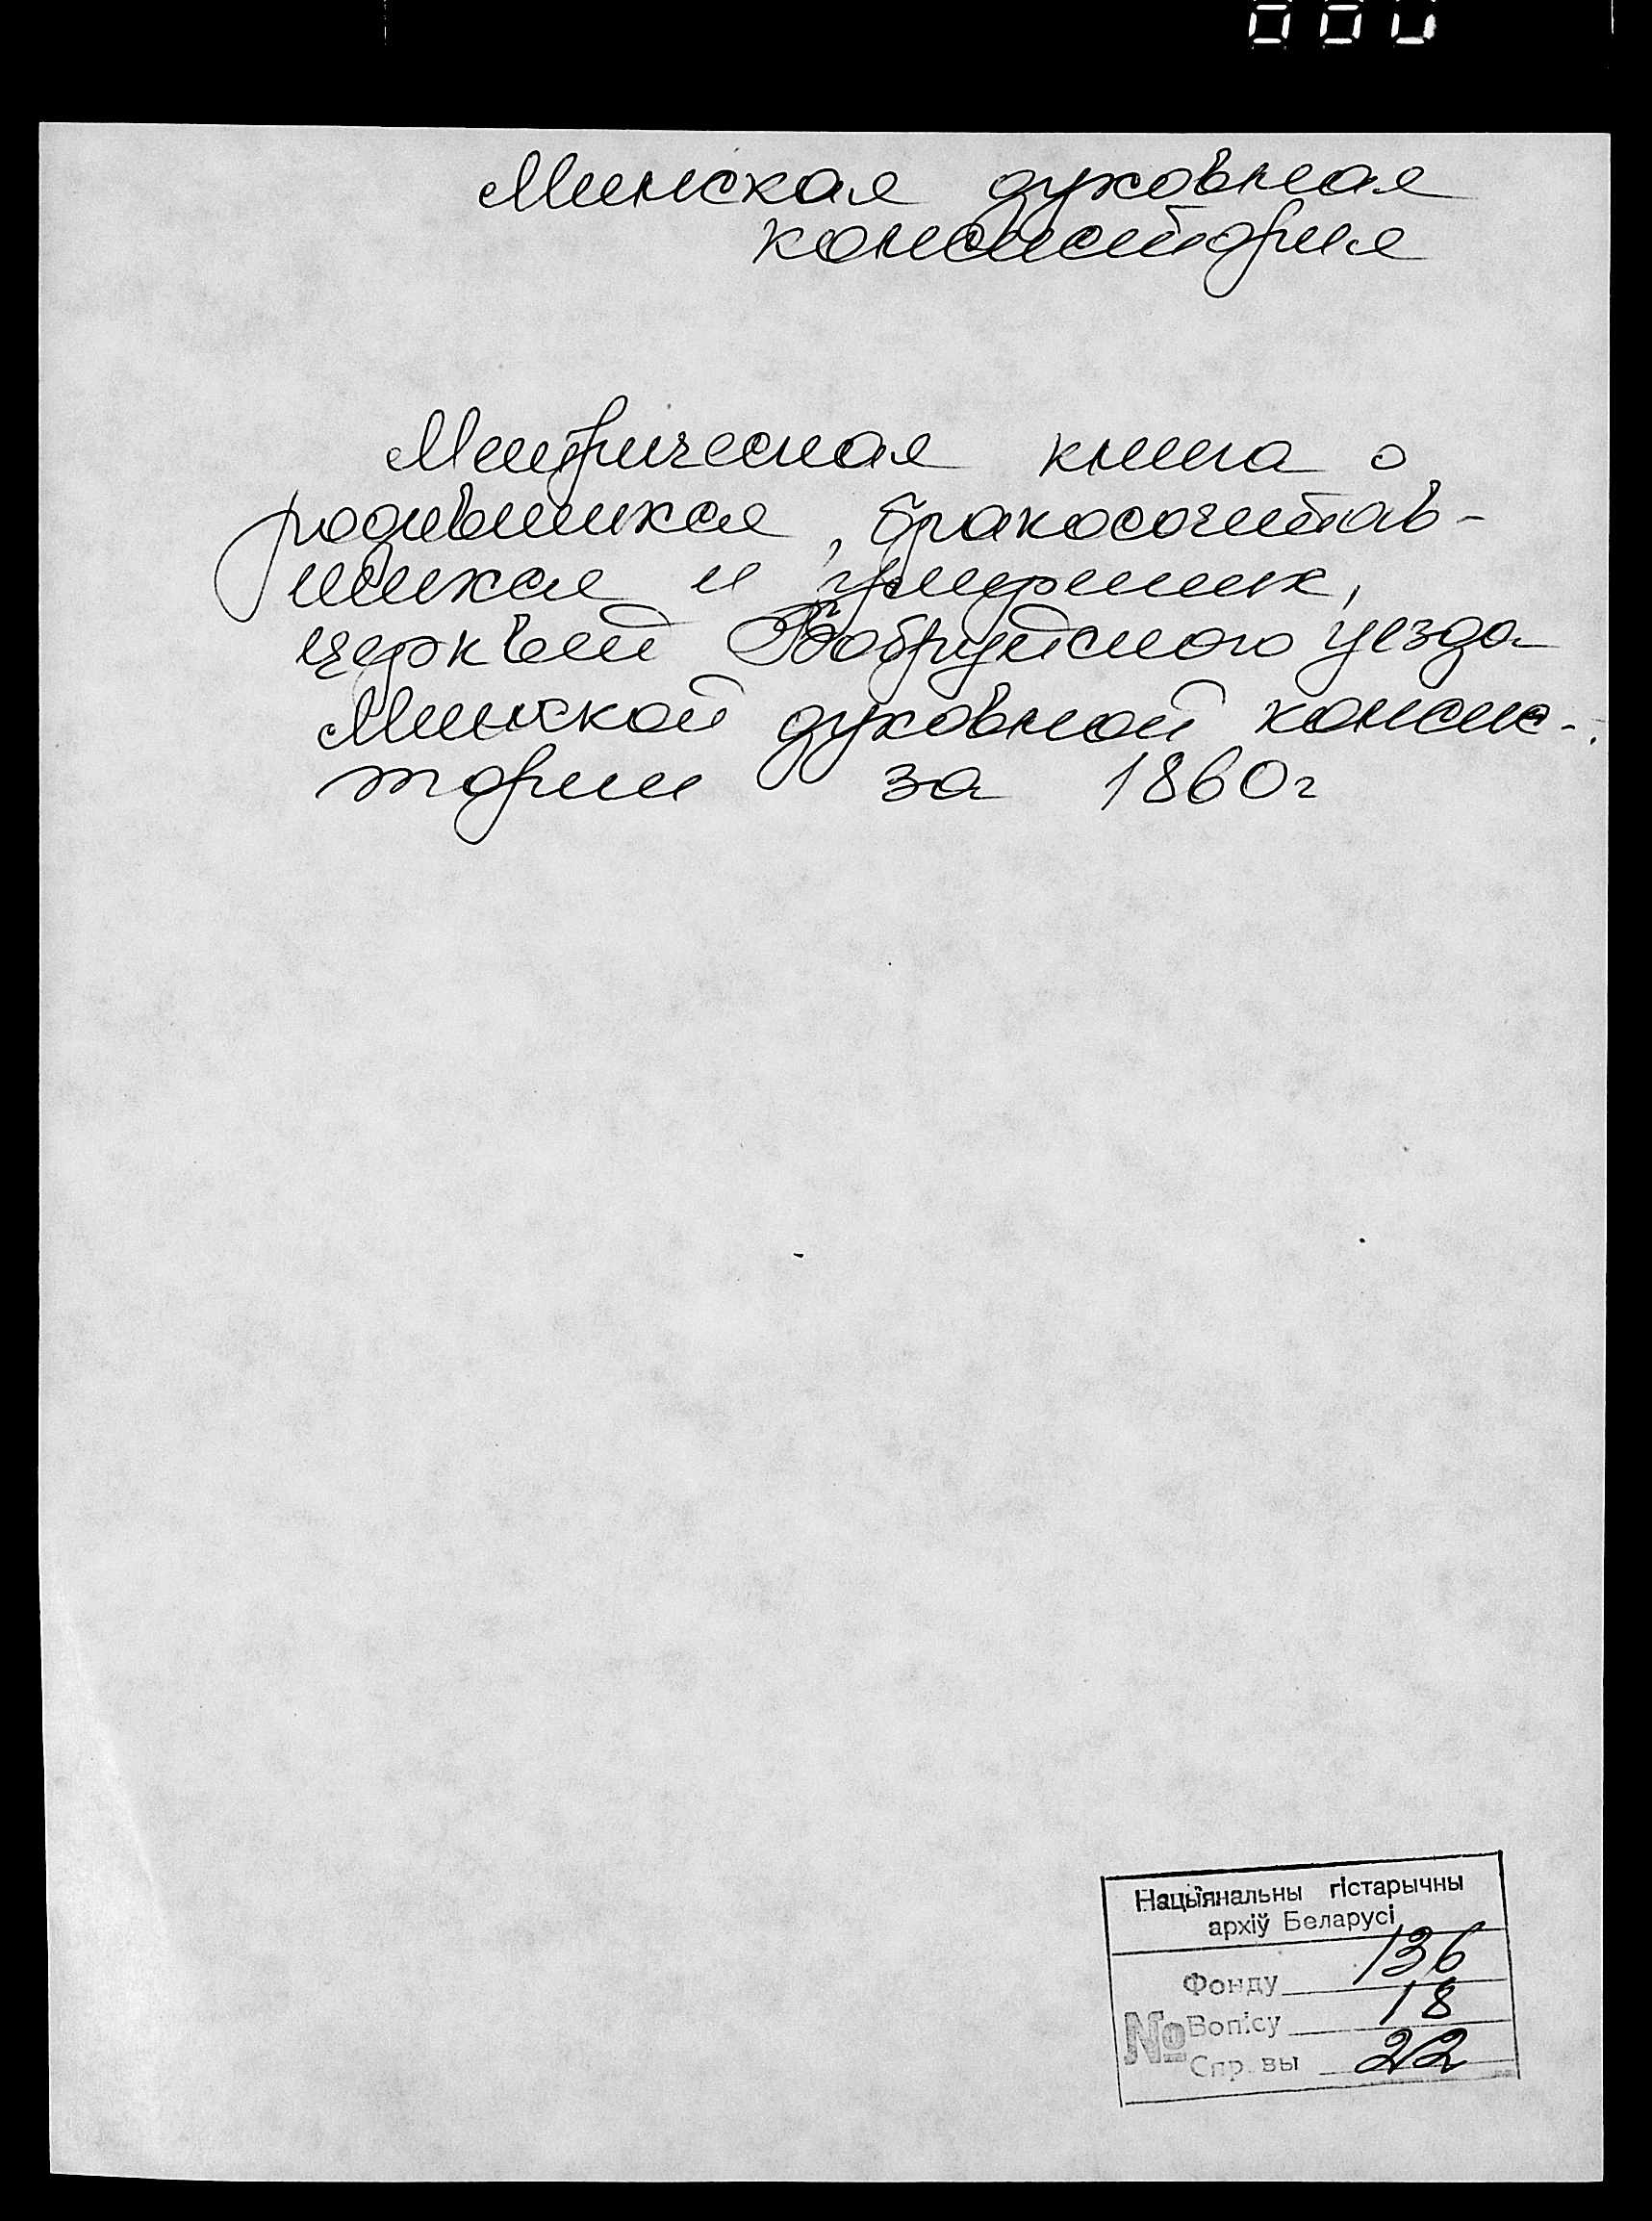 Минская духовная
консистория
Метрическая книга о
родившихся, бракосочетав-
шихся и умерших,
церквей Бобруйского уезда
Минской духовной консис-
тории за 1860г
Нацыянальны гістарычны
архіў Беларусі
Фонду 136
№ Вопісу 18
Спр. вы 22